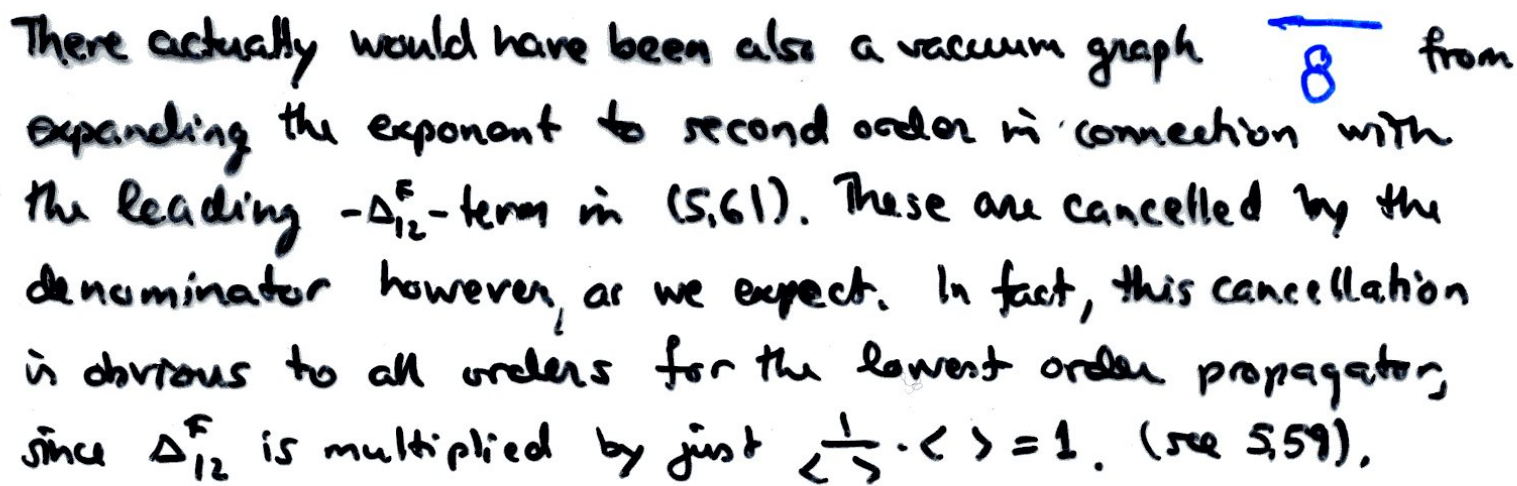 There actually would have been also a vacuum graph 8 from
expanding the exponent to second order in connection with
the leading -Δ₁₂ᶠ-term in (5,61). These are cancelled by the
denominator however, as we expect. In fact, this cancellation
is obvious to all orders for the lowest order propagator,
since Δ₁₂ᶠ is multiplied by just 1/< > · < > = 1. (see 5,59).